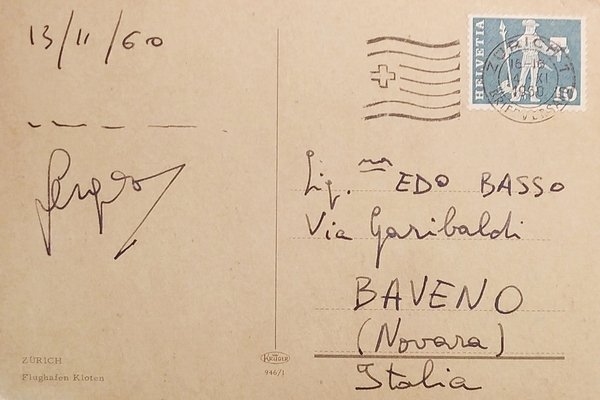 13/11/60
Sergio
ZÜRICH
Flughafen Kloten
HELVETIA
10
ZÜRICH 1
1960
BRIEFVERSAND
Sig.na EDO BASSO
Via Garibaldi
BAVENO
(Novara)
Italia
KRÜGER
946/1